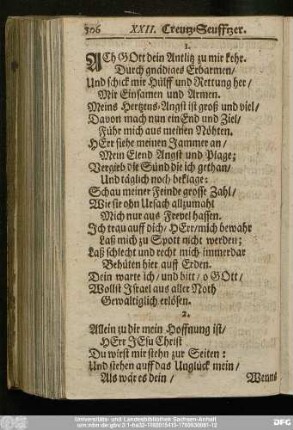 506 XXII. Creutz-Seufftzer.
1.
ACh GOtt dein Antlitz zu mir kehr.
Durch gnädiges Erbarmen/
Und schick mir Hülff und Rettung her/
Mir Einsamen und Armen.
Meins Hertzens-Angst ist groß und viel/
Davon mach nun ein End und Ziel/
Führ mich aus meinen Nöhten.
HErr siehe meinen Jammer an/
Mein Elend Angst und Plage;
Vergieb die Sünd die ich gethan/
Und täglich noch beklage:
Schau meiner Feinde grosse Zahl/
Wie sie ohn Ursach allzumahl
Mich nur aus Frevel hassen.
Ich trau auff dich/ HErr/ mich bewahr
Laß mich zu Spott nicht werden;
Laß schlecht und recht mich immerdar
Behüten hier auff Erden.
Dein warte ich/ und bitt/ o GOtt/
Wollst Israel aus aller Noth
Gewaltiglich erlösen.
2.
Allein zu dir mein Hoffnung ist/
HErr JEsu Christ
Du wirst mir stehn zur Seiten:
Und stehen auff das Unglück mein/
Als wär es dein/
Wenns
Universitäts- und Landesbibliothek Sachsen-Anhalt
DFG